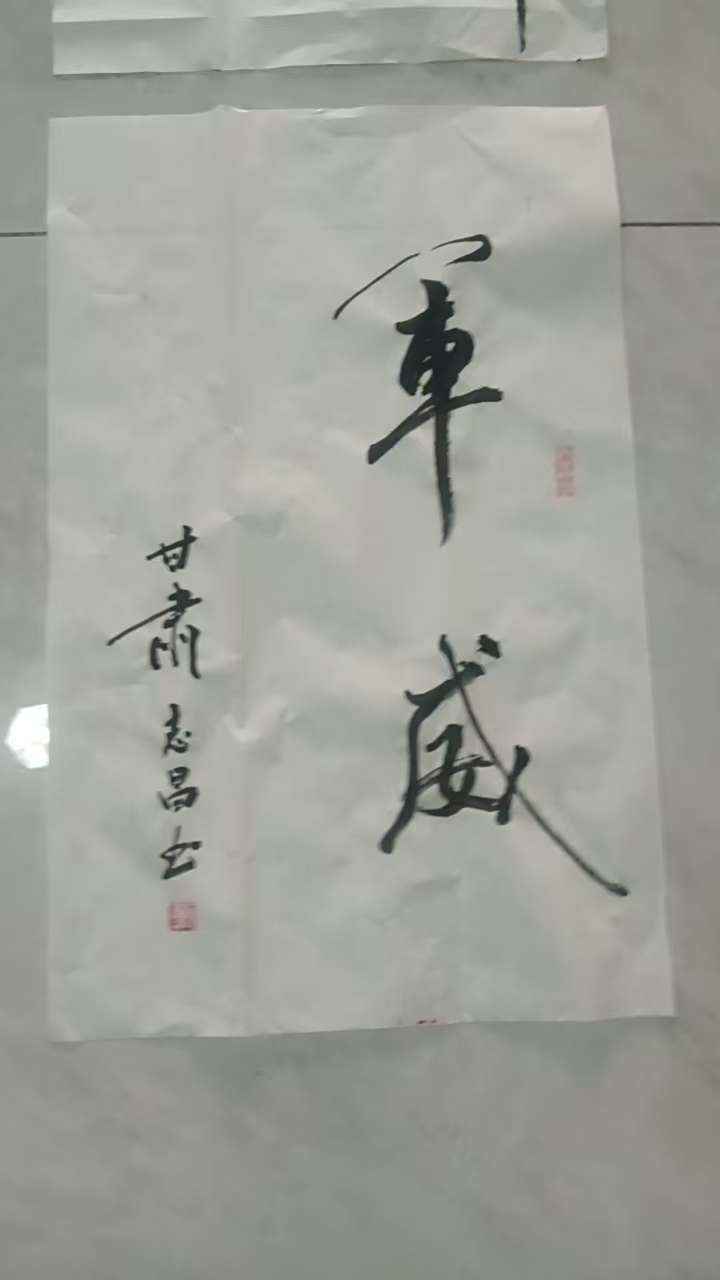 軍威
甘肅志昌书